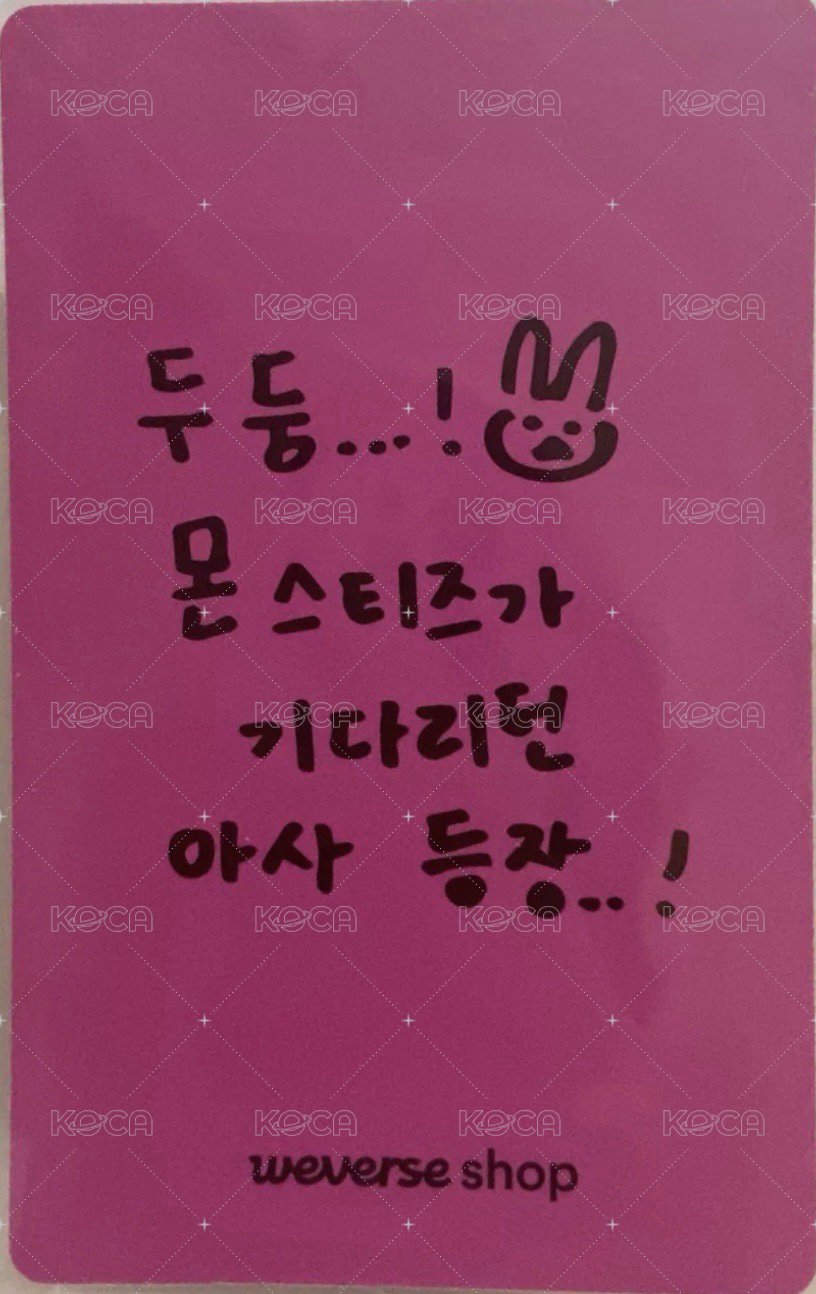 KOCA KOCA KOCA KOCA
KOCA KOCA KOCA KOCA
두둥...!
KOCA KOCA KOCA KOCA
몬스티즈가
KOCA KOCA KOCA KOCA
기다리던
아사 등장..!
KOCA KOCA KOCA KOCA
KOCA KOCA KOCA KOCA
weverse shop